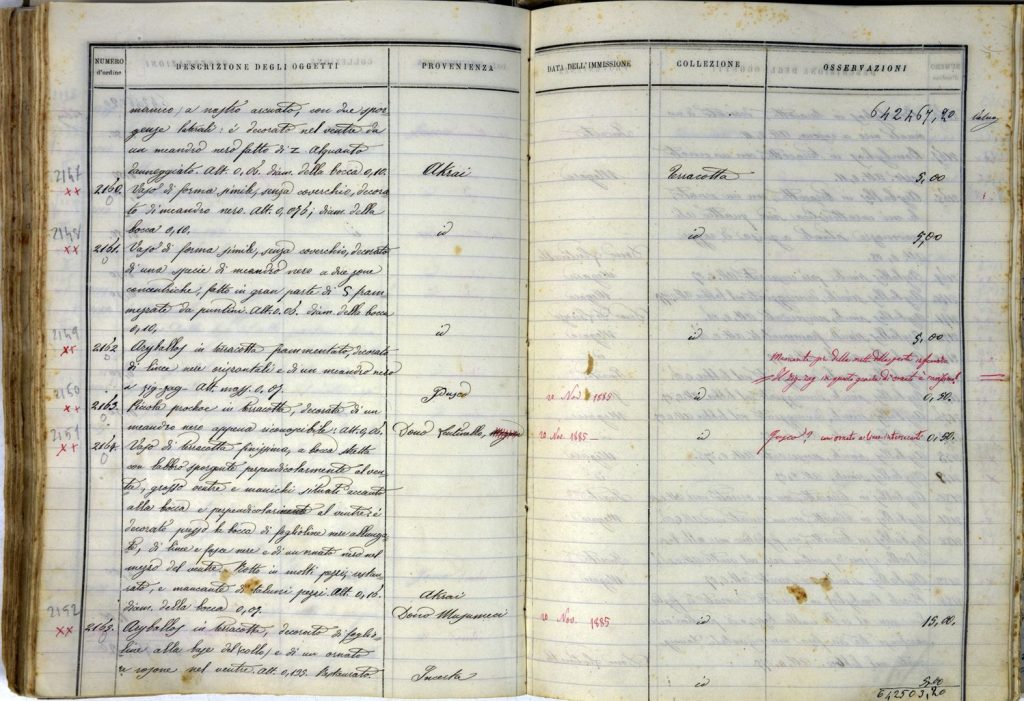 NUMERO d'ordine
DESCRIZIONE DEGLI OGGETTI
PROVENIENZA
DATA DELL'IMMISSIONE
COLLEZIONE
OSSERVAZIONI
manico, a nastro arcuato, con due spor-
genze laterali: è decorato nel ventre da
un meandro nero fatto di z. Alquanto
danneggiato. Alt. 0,06. diam. della bocca 0,10.
Akrai
Terracotta
642467,20
5,00
2147
xx
2160. Vaso di forma simile, senza coverchio, decora-
to di meandro nero. Alt. 0,076; diam. della
bocca 0,10.
id
id
5,00
2148
xx
2161. Vaso di forma simile, senza coverchio, decorato
di una specie di meandro nero a due zone
concentriche, fatto in gran parte di S fram-
mezzate da puntini. Alt. 0,06. diam. della bocca
0,10.
id
id
5,00
2149
xx
2162 Aryballos in terracotta frammentato, decorato
di linee nere orizzontali e di un meandro nero
a zig-zag. Alt. mass. 0,07.
Fusco
20 Nov. 1885
id
0,50.
2150
xx
2163. Piccola prochoe in terracotta, decorata di un
meandro nero appena riconoscibile: Alt. 0,06.
Dono
20 Nov. 1885 —
id
Fusco? con ornato a linee
0,50.
2151
xx
2164. Vaso di terracotta finissima, a bocca stretta
con labbro sporgente perpendicolarmente al ven-
tre, grosso ventre e manichi situati accanto
alla bocca e perpendicolarmente al ventre: è
decorato presso la bocca di foglioline nere allunga-
te, di linee e fasce nere e di un ornato nero nel
mezzo del ventre. Rotto in molti pezzi, restau-
rato, e mancante di taluni pezzi. Alt. 0,16.
diam. della bocca 0,07.
Akrai
Dono
20 Nov. 1885
id
15,00.
2152
xx
2165. Aryballos in terracotta, decorato di foglio-
line alla base del collo, e di un ornato
a rosone nel ventre. Alt. 0,135. Restaurato.
Incerta
id
5,00
642503,20